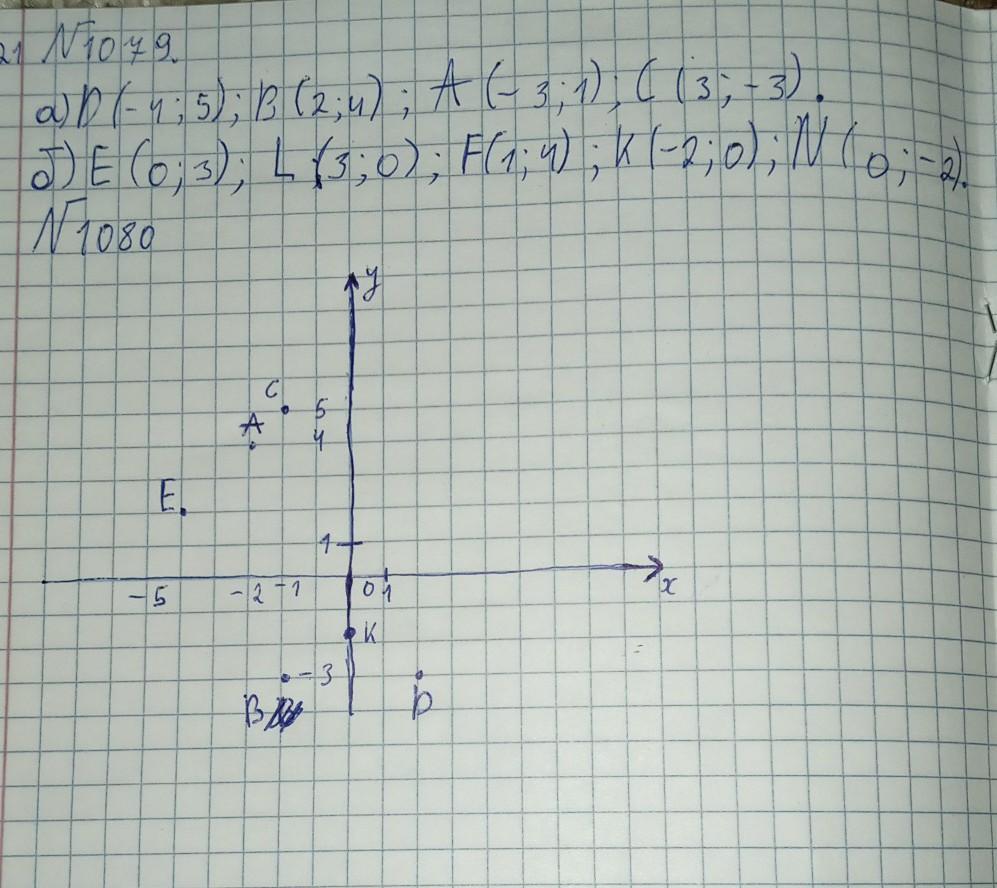 21 №1079.
а) D(-4; 5); B(2; 4); A(-3; 1); C(3; -3).
б) E(0; 3); L(3; 0); F(1; 4); K(-2; 0); N(0; -2).
№1080
y
C
5
A
4
E
1
-5 -2 -1 0 1 x
K
-3
B D